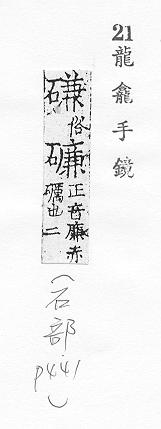 21
龍龕手鏡
䃸俗礹正音廉赤
礪也二
(石部
P441)